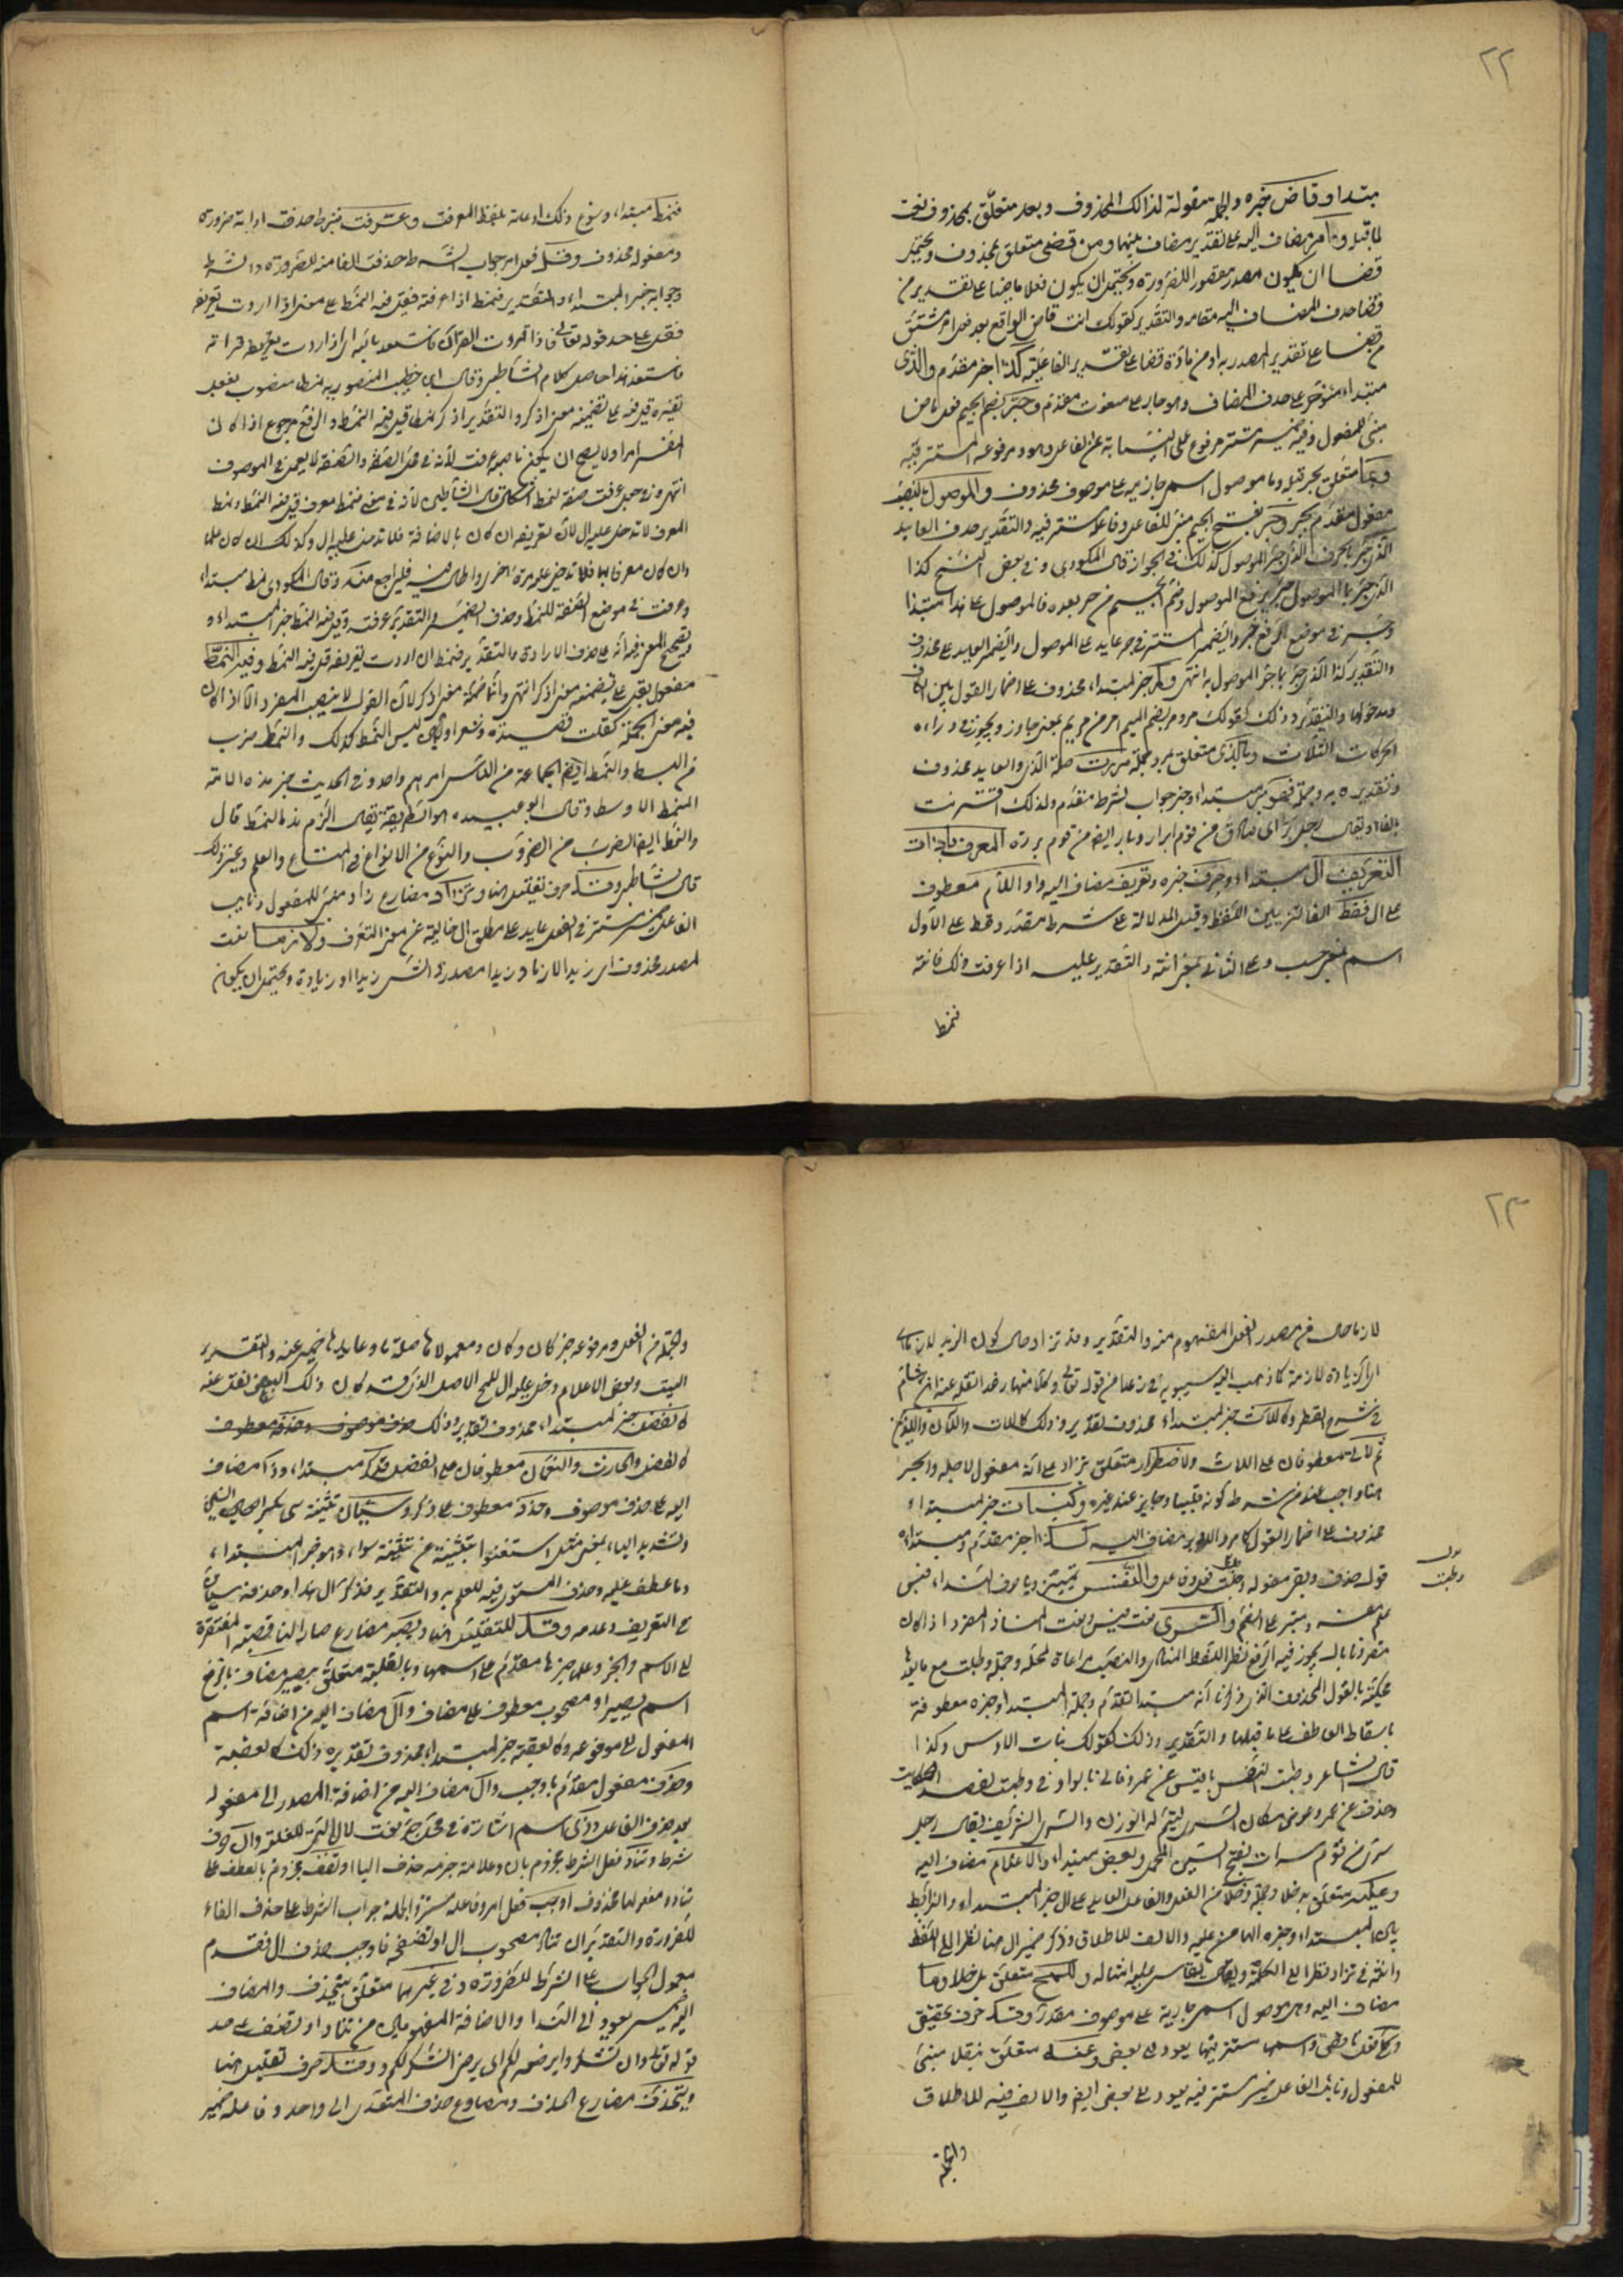 ٢٢
مبتدا وقاض خبره والجملة مقولة لذالك المحذوف وبعد متعلق بمحذوف نعت
لما قبله وامر مضاف اليه على تقدير مضاف بينهما ومن قضى متعلق بمحذوف ويحتمل
قضا ان يكون مصدر مقصور للضرورة ويحتمل ان يكون فعلا ماضيا على تقدير من
قضا حذف المضاف اليه مقامه والتقدير كقولك انت قاض الواقع بعد فعل امر مشتق
من قضا على تقدير المصدرية او من مادة قضا على تقدير الفاعلية كذا خبر مقدم والذى
مبتداء مؤخر على حذف المضاف وهو جار على منعوت مقدم وجر بضم الجيم فعل ماض
مبنى للمفعول وفيه ضمير مستتر مرفوع على النيابة عن الفاعل وهو ومرفوعه المستتر فيه
وبما متعلق بجر قبله وما موصول اسمى جار على موصوف محذوف والموصول بالنصب
مفعول مقدم بجر وجر بفتح الجيم مبنى للفاعل وفاعله مستتر فيه والتقدير حذف العايد
الذى جر بالحرف الذى جر الموصول كذلك فى الجواز قال المكودى وفى بعض النسخ كذا
الذى جر بما الموصول جر برفع الموصول وضم الجيم من جر بعده فالموصول على هذا مبتدا
وجر فى موضع الرفع خبر والضمير المستتر فى جر عايد على الموصول والضمير العايد على محذوف
والتقدير كذا الذى جر بما جر الموصول به انتهى وكمر خبر لمبتداء محذوف على اضمار القول بين الكاف
ومدخولها والتقدير وذلك كقولك مر ومر بضم الميم امر من مر يمر بمعنى جاوز ويجوز فى راءه
الحركات الثلاث وبالذى متعلق بمر وجملة مررت صلة الذى والعايد محذوف
وتقديره به وجملة فهو بر مبتداء وخبر جواب لشرط مقدم ولذلك اقترنت
بالفا ويقال رجل بر اى صادق من قوم ابرار وبار ايضا من قوم بررة المعرف باداة
التعريف ال مبتداء وحرف خبره وتعريف مضاف اليه واو اللام معطوف
على ال فقط الفا لتزيين اللفظ وقيل للدلالة على شرط مقدر وقط على الاول
اسم بمعنى حسب وعلى الثانى بمعنى انته والتقدير عليه اذا عرفت ذلك فانته
فنمط
فنمط مبتداء وسوغ ذلك اعادته بلفظ المعرفة وعرفت شرط حذفت اداته ضرورة
ومفعوله محذوف وقل فعل امر جواب الشرط حذفت الفا منه للضرورة والشرط
وجوابه خبر المبتداء والتقدير فنمط اذا عرفته فقل فيه النمط على معنى اذا اردت تعريفه
فقل على حد قوله تعالى فاذا قرءت القرآن فاستعذ بالله اى اذا اردت قراءته
فاستعذ هذا حاصل كلام الشاطبى وقال ابن خطيب المنصورية نمطا منصوب بفعل
يفسره قل فيه على تضمينه معنى اذكر والتقدير اذكر نمطا قل فيه النمط والرفع مرجوح اذا كان
المفسر امرا ولا يصح ان يكون ناصبه عرفت لانه فى محل الصفة والصفة لا تعمل فى الموصوف
انتهى وفى جعل عرفت صفة لنمط اشكال قال الشاطبى لانه فى معنى فنمط معرف قل فيه النمط ونمط
المعرف لا تدخل عليه ال لان تعريفه ان كان بالاضافة فلا تدخل عليه ال وكذلك ان كان علما
وان كان معرفا بها فلا تدخل عليه مرة اخرى واطال فيه فليراجع منه وقال المكودى نمط مبتداء
وعرفت فى موضع الصفة للنمط وحذف الضمير والتقدير عرفته وقل فيه النمط خبر المبتداء و
تصحيح المعنى فيه انه على حذف الارادة والتقدير فنمط ان اردت تعريفه قل فيه النمط وفيه النمط
مفعول بقل على تضمينه معنى اذكر انتهى وانما ضمنه معنى اذكر لان القول لا ينصب المفرد الا اذا كان
فيه معنى الجملة كقلت قصيدة وشعرا وليس النمط كذلك والنمط ضرب
من البسط والنمط ايضا الجماعة من الناس امرهم واحد وفى الحديث خير هذه الامة
النمط الاوسط وقال ابو عبيده هو الطريقة يقال الزم هذا النمط قال
والنمط ايضا الضرب من الضروب والنوع من الانواع فى المتاع والعلم وغير ذلك
قاله الشاطبى وقد حرف تقليل هنا وتزاد مضارع زاد مبنى للمفعول ونايب
الفاعل ضمير مستتر فى الفعل عايد على مطلق ال خالية عن معنى التعريف ولازما نعت
لمصدر محذوف اى زيدا لازما وزيدا مصدر زاد الشى زيدا او زيادة ويحتمل ان يكون
٢٣
لازما حال من مصدر الفعل المفهوم منه والتقدير وقد تزاد حال كون الزيد لازما
اى زيادة لازمة كما ذهب اليه سيبويه
فى شرح القطر وكاللات خبر لمبتداء محذوف تقديره وذلك كاللات والآن والذين
ثم اللاتى معطوفان على اللات ولاضطرار متعلق بتزاد على انه مفعول لاجله والجر
هنا واجب عند من شرط كونه قلبيا وجايز عند غيره وكبنات خبر لمبتداء
محذوف على اضمار القول كما مر والاوبر مضاف اليه كذا خبر مقدم ومبتداه
قول حذف وبقى مفعوله وطبت فعل وفاعل والنفس تمييز ويا حرف لنداء وقيس
علم مبنى على الضم والسرى نعت قيس ونعت المنادى المفرد اذا كان
مقرونا بال يجوز فيه الرفع نظرا للفظ المنادى والنصب مراعاة لمحله وجملة وطبت مع ما بعدها
محكية بالقول المحذوف
باسقاط العاطف على ما قبلها والتقدير وذلك كقولك بنات الاوبر وكذا
قال الشاعر وطبت النفس يا قيس عن عمرو
وحذف عن عمرو وعوض مكانه السرى ليتم له الوزن والسرى الشريف يقال رجل
سرى من قوم سراة بفتح السين المهمله وبعض مبتداء والاعلام مضاف اليه
وعليه متعلق بدخلا وجملة دخلا من الفعل والفاعل العايد على ال خبر المبتداء والرابط
بين المبتداء وخبره الها من عليه والالف للاطلاق وذكر ضمير ال هنا نظرا الى اللفظ
وانثه فى تزاد نظرا الى الكلمة وللمح متعلق بدخلا وما
مضاف اليه وهى موصول اسمى جارية على موصوف مقدر وقد حرف تحقيق
وكان فعل ناقص واسمها مستتر فيها يعود الى بعض وعنه متعلق بنقل مبنى
للمفعول ونايب الفاعل ضمير مستتر فيه يعود الى بعض ايضا والالف فيه للاطلاق
والجملة
والجملة من الفعل ومرفوعه خبر كان وكان ومعمولاها صلة ما وعايدها ضمير عنه والتقدير
البيت وبعض الاعلام دخل عليه ال للمح الاصل الذى قد كان ذلك البعض نقل عنه
كالفضل خبر لمبتداء محذوف تقديره وذلك
كالفضل والحارث والنعمان معطوفان على الفضل فذكر مبتداء وذا مضاف
اليه على حذف موصوف وحذفه معطوف على ذكر وسيان تثنية سى بكسر السين
وتشديد الياء بمعنى مثل استغنوا بتثنيته عن تثنية سواء وهو خبر المبتداء
وما عطف عليه وحذف المتعلق فيه للعلم به والتقدير فذكر ال هذا وحذفه سيان
فى التعريف وعدمه وقد للتقليل هنا ويصير مضارع صار الناقصة المفتقرة
الى الاسم والخبر وعلما خبرها مقدم على اسمها وبالغلبة متعلق بيصير ومضاف بالرفع
اسم يصير او مصحوب معطوف على مضاف وال مضاف اليه من اضافة اسم
المفعول الى مرفوعه وكالعقبة خبر لمبتداء محذوف تقديره ذلك كالعقبة
وحذف مفعول مقدم باوجب وال مضاف اليه من اضافة المصدر الى مفعوله
بعد حذف الفاعل وذى اسم اشارة فى محل جر نعت لال التى للغلبة وان حرف
شرط وتناد فعل الشرط مجزوم بان وعلامة جزمه حذف اليا او تضف مجزوم بالعطف على
تناد ومفعولها محذوف اوجب فعل امر وفاعله مستتر والجملة جواب الشرط على حذف الفاء
للضرورة والتقدير ان تناد مصحوب ال او تضفه فاوجب حذف ال فقدم
معمول الجواب على الشرط للضرورة وفى غيرهما متعلق بتنحذف والمضاف
اليه ضمير يعود الى النداء والاضافة المفهومين من تناد او تضف على حد
قوله تعالى وان تشكروا يرضه لكم اى يرض الشكر لكم وقد حرف تقليل هنا
وتنحذف مضارع انحذف ومطاوع حذف المتعدى الى واحد وفاعله ضمير